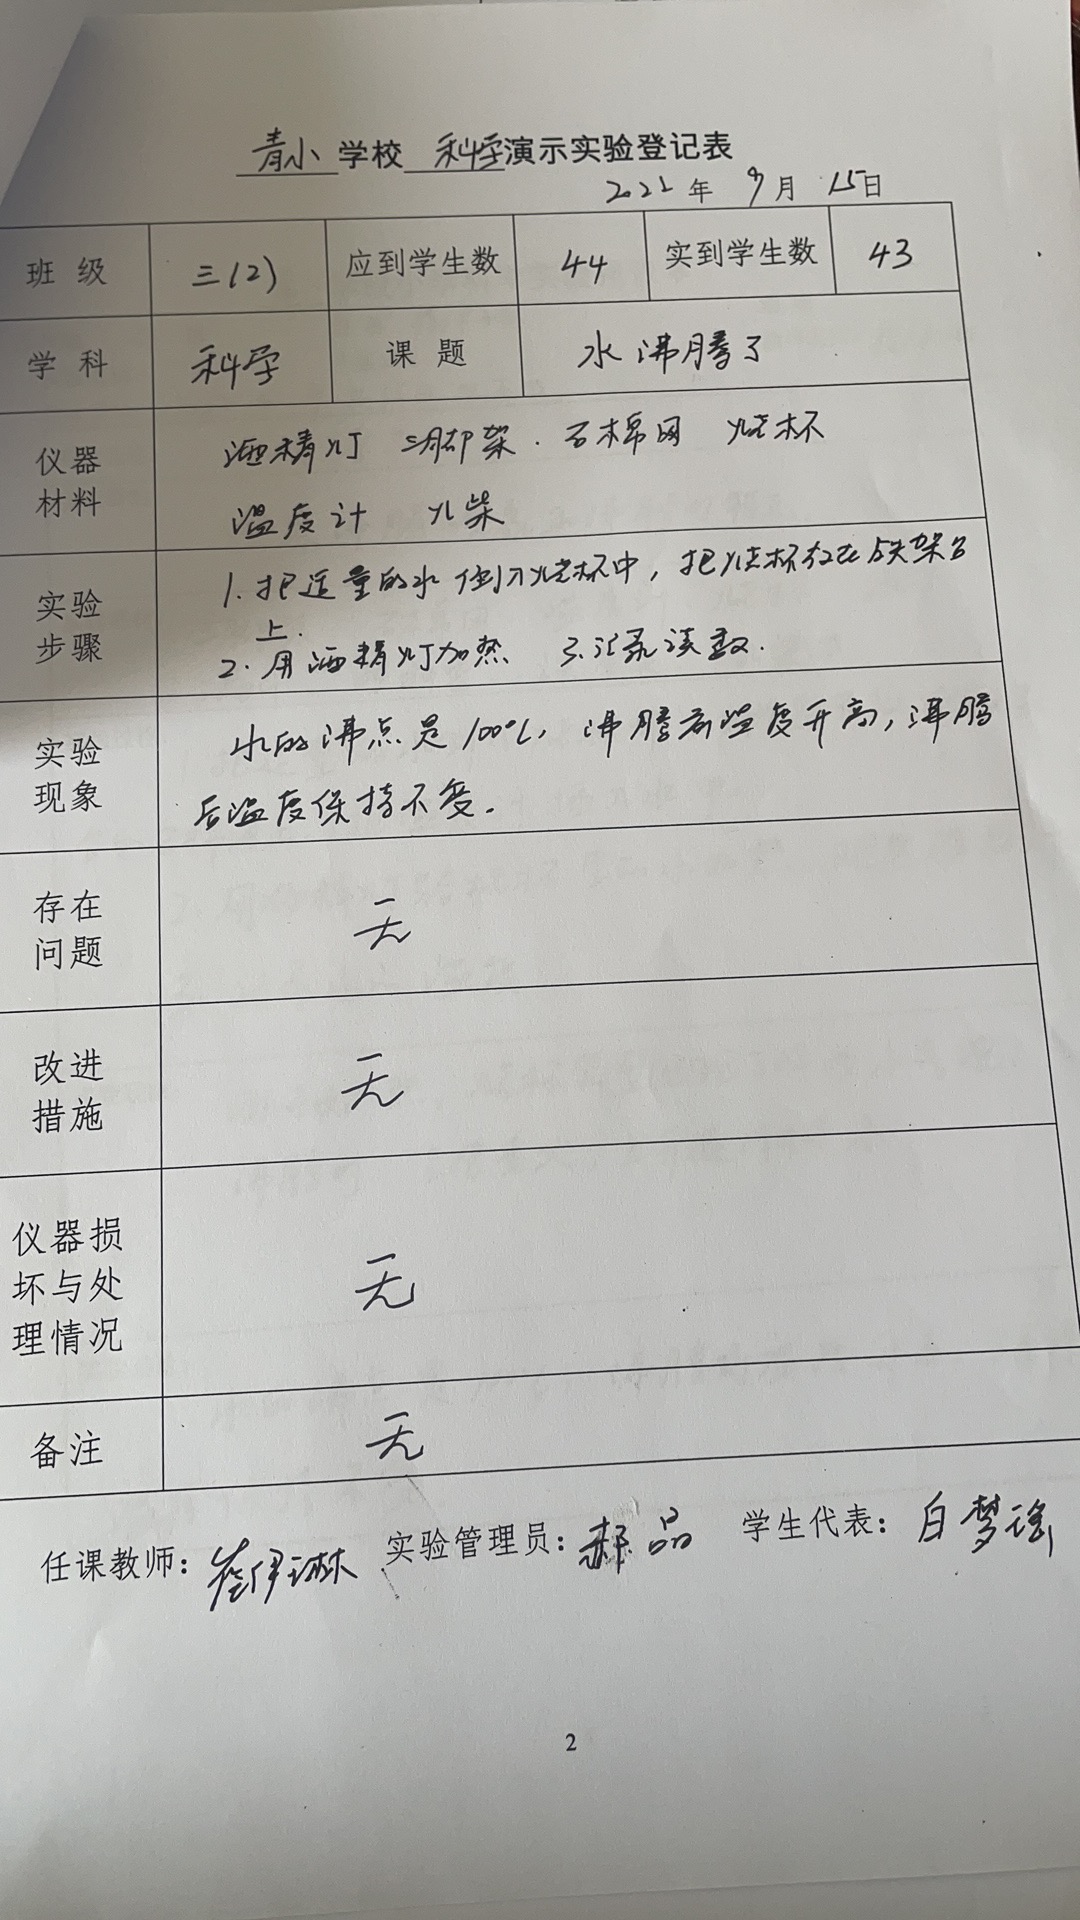 青小学校 科学演示实验登记表
2022年 9月 15日
班级 三(2) 应到学生数 44 实到学生数 43
学科 科学 课题 水沸腾了
仪器材料 酒精灯 三脚架. 石棉网 烧杯
温度计 火柴
实验步骤 1. 把适量的水倒入烧杯中，把烧杯放在铁架台
上.
2. 用酒精灯加热 3. 记录读数.
实验现象 水的沸点是100℃，沸腾前温度升高，沸腾
后温度保持不变.
存在问题 无
改进措施 无
仪器损坏与处理情况 无
备注 无
任课教师：崔伊琳 实验管理员：郝品 学生代表：白梦瑶
2